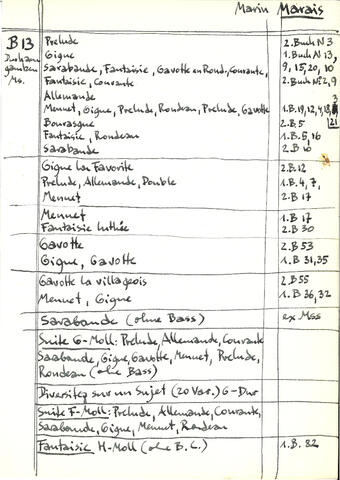 Marin Marais
B13 Prelude 2.Buch N 3
Durham gamben Ms. Gigue 1.Buch N 13,
Sarabande, Fantaisie, Gavotte en Rond., Courante, 9, 15, 20, 10
Fantaisie, Courante 2.Buch No 2, 9
Allemande 3
Menuet, Gigue, Prelude, Rondeau, Prelude, Gavotte 1.B.19, 12, 4, 18, 21
Bourasque 2.B.5
Fantaisie, Rondeau 1.B.5, 16
Sarabande 2.B 10
Gigue La Favorite 2.B.12
Prelude, Allemande, Double 1.B.4, 7,
Menuet 2.B 17
Menuet 1.B 17
Fantaisie luthée 2.B 30
Gavotte 2.B 53
Gigue, Gavotte 1.B 31, 35
Gavotte la villageois 2.B 55
Menuet, Gigue 1.B 36, 32
Sarabande (ohne Bass) ex Mss
Suite G-Moll: Prelude, Allemande, Courante
Sarabande, Gigue, Gavotte, Menuet, Prelude,
Rondeau (ohne Bass)
Diversitez sur un Sujet (20 Var.) G-Dur
Suite F-Moll: Prelude, Allemande, Courante,
Sarabande, Gigue, Menuet, Rondeau
Fantaisie H-Moll (ohne B.C.) 1.B. 82